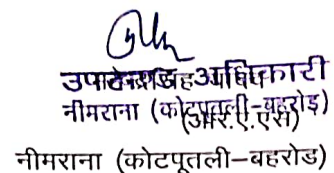 उपखण्ड अधिकारी
नीमराना (कोटपूतली-बहरोड़)
(आर.ए.एस)
नीमराना (कोटपूतली–बहरोड)